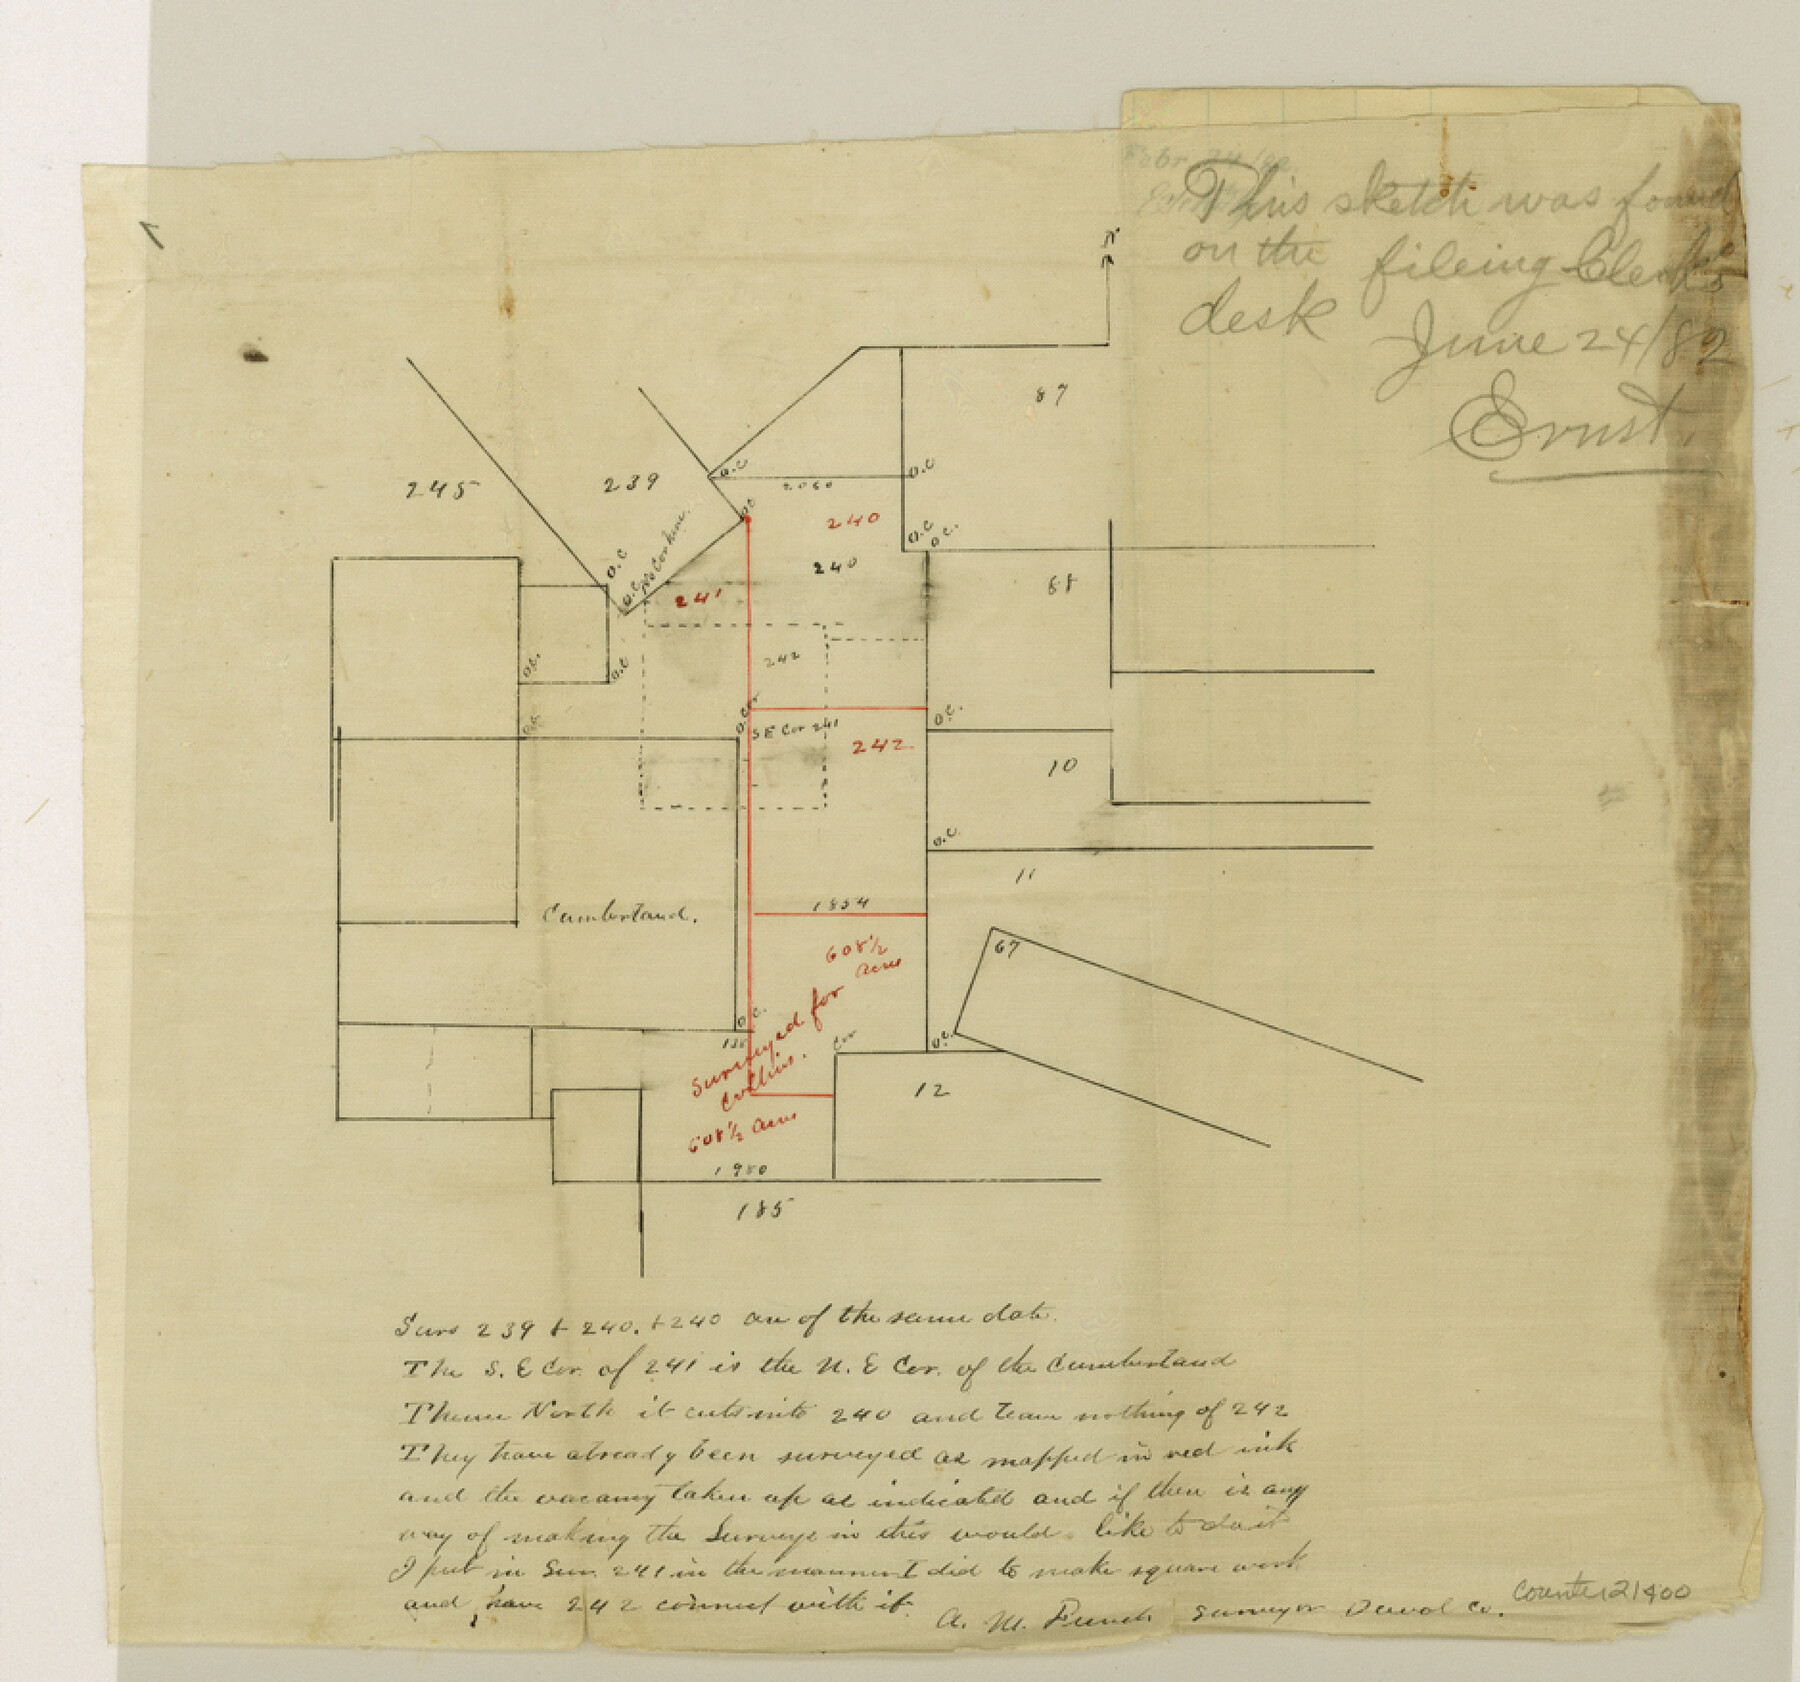 This sketch was found
on the fileing Clerks
desk June 24/82
Ernst.
N
87
245
239
O.C
O.C
2060
O.C
240
O.C
O.C.
No Cor here.
O.C
O.C
240
241
88
242
O.C.
O.C
O.C.
S E Cor 241
242
10
O.C.
11
1854
Cumberland.
608½
Acres
67
Surveyed for
Collins.
O.C.
Cor
O.C.
12
608½ Acres
1980
185
Surs 239 & 240. & 240 are of the same date.
The S. E Cor. of 241 is the N. E Cor. of the Cumberland
Thence North it cuts into 240 and leave nothing of 242
They have already been surveyed as mapped in red ink
and the vacancy taken up as indicated and if there is any
way of making the Surveys in this would like to do it
I put in Sur. 241 in the manner I did to make square work
and have 242 connect with it.
A. M. French Surveyor Duval Co.
Counter 21400